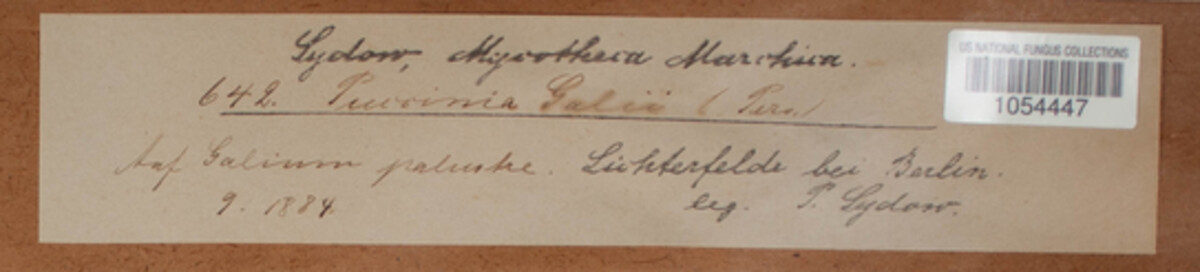 Sydow, Mycotheca Marchica.
US NATIONAL FUNGUS COLLECTIONS
1054447
642. Puccinia Galii (Pers.)
Auf Galium palustre. Lichterfelde bei Berlin.
9. 1884. leg. P. Sydow.